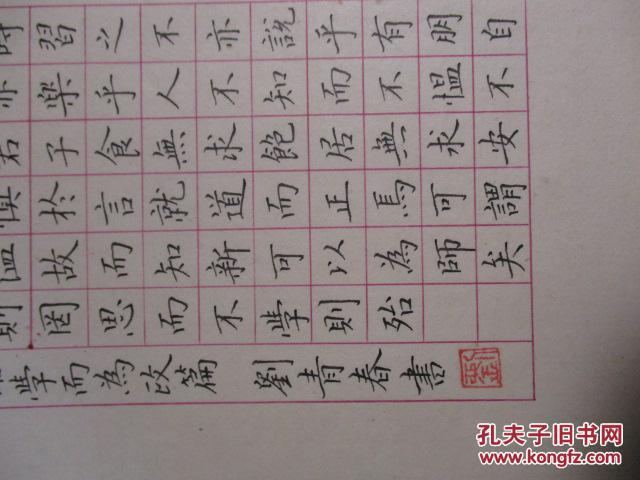 時習之不亦說乎有朋自
亦樂乎人不知而不慍不
君子食無求飽居無求安
慎於言就道而正焉可謂
溫故而知新可以為師矣
則罔思而不學則殆
學而為政篇 劉青春書
孔夫子旧书网
www.kongfz.com